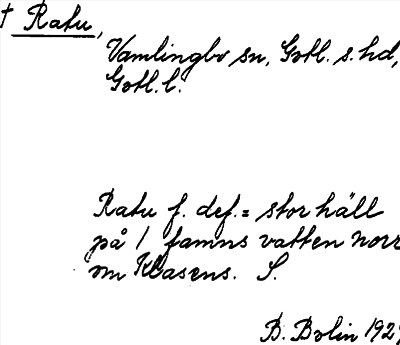 † Ratu,
Vamlingbo sn, Gotl. s. hd,
Gotl. l.
Ratu f. def. = stor häll
på 1 famns vatten norr
om Klasens. S.
B. Bolin 1927